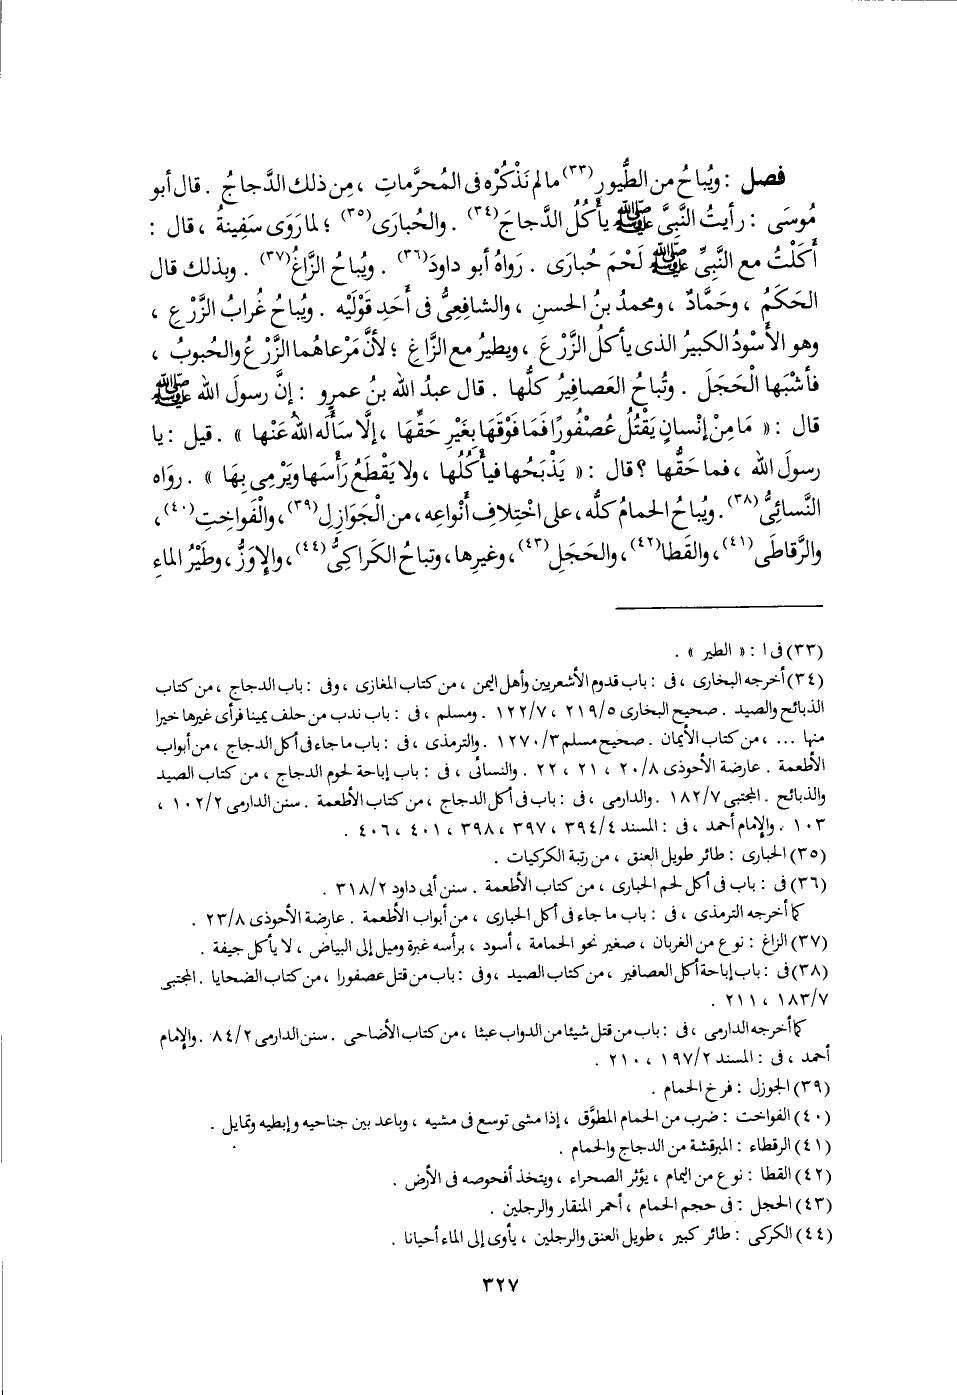 فصل : ويُباحُ من الطُّيورِ(٣٣) ما لم نَذْكُرْه فى المُحرَّماتِ ، مِن ذلك الدَّجاجُ . قال أبو
مُوسَى : رأيتُ النَّبِىَّ ﷺ يأكُلُ الدَّجاجَ(٣٤) . والحُبارَى(٣٥) ؛ لما رَوَى سَفِينةُ ، قال :
أكَلْتُ مع النَّبِىِّ ﷺ لَحْمَ حُبارَى . رَواهُ أبو داودَ(٣٦) . ويُباحُ الزَّاغُ(٣٧) . وبذلك قال
الحَكَمُ ، وحَمَّادٌ ، ومحمدُ بنُ الحسنِ ، والشافِعِىُّ فى أحَدِ قَوْلَيْه . ويُباحُ غُرابُ الزَّرْعِ ،
وهو الأسْوَدُ الكبيرُ الذى يأكلُ الزَّرْعَ ، ويطيرُ مع الزَّاغِ ؛ لأنَّ مَرْعاهُما الزَّرْعُ والحُبوبُ ،
فأشْبَها الْحَجَلَ . وتُباحُ العَصافِيرُ كلُّها . قال عبدُ الله بنُ عمرٍو : إنَّ رسولَ الله ﷺ
قال : « مَا مِنْ إنْسانٍ يَقْتُلُ عُصْفُورًا فَمَا فَوْقَهَا بِغَيْرِ حَقِّهَا ، إلَّا سَأَلَه اللهُ عَنْها » . قيل : يا
رسولَ الله ، فما حَقُّها ؟ قال : « يَذْبَحُها فيأْكُلُها ، ولا يَقْطَعُ رَأْسَها ويَرْمِى بِهَا » . روَاه
النَّسائِىُّ(٣٨) . ويُباحُ الحمامُ كلُّه ، على اخْتِلافِ أنْواعِه ، من الْجَوَازِلِ(٣٩) ، والْفَواخِتِ(٤٠) ،
والرَّقاطَى(٤١) ، والقَطا(٤٢) ، والحَجَلِ(٤٣) ، وغيرِها ، وتباحُ الكَراكِىُّ(٤٤) ، والإِوَزُّ ، وطَيْرُ الماءِ
(٣٣) فى ا : « الطير » .
(٣٤) أخرجه البخارى ، فى : باب قدوم الأشعريين وأهل اليمن ، من كتاب المغازى ، وفى : باب الدجاج ، من كتاب
الذبائح والصيد . صحيح البخارى ٢١٩/٥ ، ١٢٢/٧ . ومسلم ، فى : باب ندب من حلف يمينا فرأى غيرها خيرا
منها ... ، من كتاب الأيمان . صحيح مسلم ١٢٧٠/٣ . والترمذى ، فى : باب ما جاء فى أكل الدجاج ، من أبواب
الأطعمة . عارضة الأحوذى ٢٠/٨ ، ٢١ ، ٢٢ . والنسائى ، فى : باب إباحة لحوم الدجاج ، من كتاب الصيد
والذبائح . المجتبى ١٨٢/٧ . والدارمى ، فى : باب فى أكل الدجاج ، من كتاب الأطعمة . سنن الدارمى ١٠٢/٢ ،
١٠٣ . والإمام أحمد ، فى : المسند ٣٩٤/٤ ، ٣٩٧ ، ٣٩٨ ، ٤٠١ ، ٤٠٦ .
(٣٥) الحبارى : طائر طويل العنق ، من رتبة الكركيات .
(٣٦) فى : باب فى أكل لحم الحبارى ، من كتاب الأطعمة . سنن أبى داود ٣١٨/٢ .
كما أخرجه الترمذى ، فى : باب ما جاء فى أكل الحبارى ، من أبواب الأطعمة . عارضة الأحوذى ٢٣/٨ .
(٣٧) الزاغ : نوع من الغربان ، صغير نحو الحمامة ، أسود ، برأسه غبرة وميل إلى البياض ، لا يأكل جيفة .
(٣٨) فى : باب إباحة أكل العصافير ، من كتاب الصيد ، وفى : باب من قتل عصفورا ، من كتاب الضحايا . المجتبى
١٨٣/٧ ، ٢١١ .
كما أخرجه الدارمى ، فى : باب من قتل شيئا من الدواب عبثا ، من كتاب الأضاحى . سنن الدارمى ٨٤/٢ . والإمام
أحمد ، فى : المسند ١٩٧/٢ ، ٢١٠ .
(٣٩) الجوزل : فرخ الحمام .
(٤٠) الفواخت : ضرب من الحمام المطوَّق ، إذا مشى توسع فى مشيه ، وباعد بين جناحيه وإبطيه وتمايل .
(٤١) الرقطاء : المبرقشة من الدجاج والحمام .
(٤٢) القطا : نوع من اليمام ، يؤثر الصحراء ، ويتخذ أفحوصه فى الأرض .
(٤٣) الحجل : فى حجم الحمام ، أحمر المنقار والرجلين .
(٤٤) الكركى : طائر كبير ، طويل العنق والرجلين ، يأوى إلى الماء أحيانا .
٣٢٧